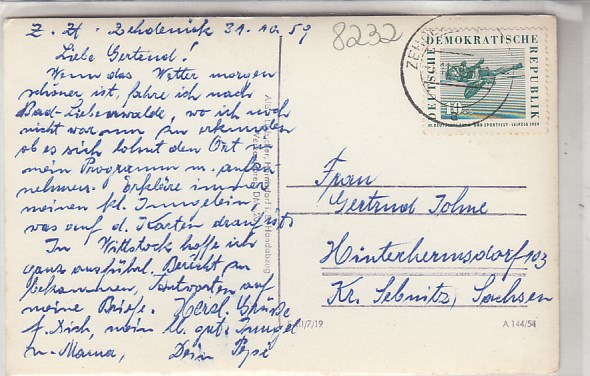 Z. Zt. Zehdenick 31.10.59
Liebe Gertrud!
Wenn das Wetter morgen
schöner ist, fahre ich nach
Bad-Liebenwalde, wo ich noch
nicht war um zu erkunden
ob es sich lohnt den Ort in
mein Programm m. aufzu
nehmen. Erkläre immer
meinen kl. Jungelein,
was auf d. Karten drauf ist.
In Wittstock hoffe ich
ganz ausführl. Bericht zu
bekommen, Antworten auf
meine Briefe. Herzl. Grüße
f. Dich, mein lb. gut. Jungel
u. Mama, Dein Pepi
8232
DEUTSCHE DEMOKRATISCHE REPUBLIK
10
UND SPORTFEST · LEIPZIG 1959
Frau
Gertrud Johne
Hinterhermsdorf 103
Kr. Sebnitz, Sachsen
Handabzug
III/7/19
A 144/54